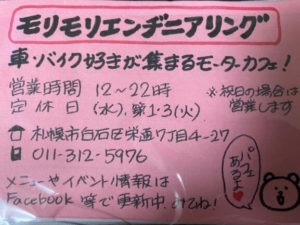 モリモリエンヂニアリング
車・バイク好きが集まるモーターカフェ！
営業時間 12〜22時
定休日 (水)、第1・3(火)
※祝日の場合は
営業します
札幌市白石区栄通7丁目4-27
011-312-5976
メニューやイベント情報は
Facebook等で更新中。みてね！
パフェ
あるよ